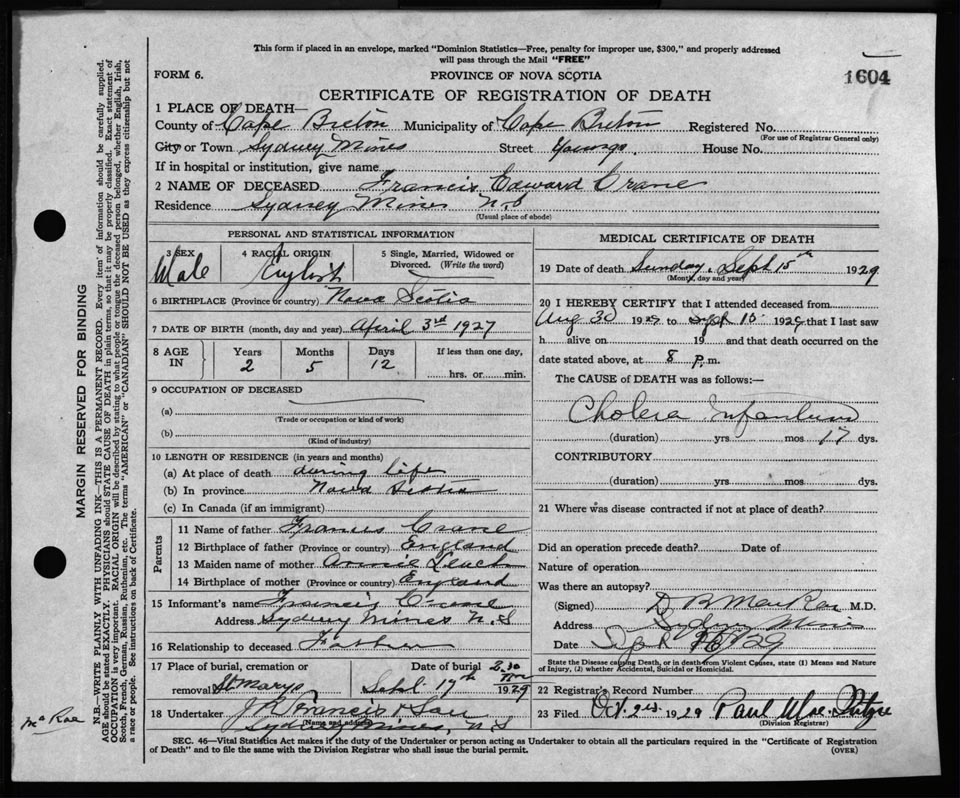 This form if placed in an envelope, marked "Dominion Statistics—Free, penalty for improper use, $300," and properly addressed
will pass through the Mail "FREE"
FORM 6.
PROVINCE OF NOVA SCOTIA
1604
CERTIFICATE OF REGISTRATION OF DEATH
1 PLACE OF DEATH—
County of Cape Breton Municipality of Cape Breton Registered No.
(For use of Registrar General only)
City or Town Sydney Mines Street Youngs. House No.
If in hospital or institution, give name
2 NAME OF DECEASED Francis Edward Crane
Residence Sydney Mines N.S
(Usual place of abode)
PERSONAL AND STATISTICAL INFORMATION
3 SEX Male
4 RACIAL ORIGIN English
5 Single, Married, Widowed or Divorced. (Write the word)
6 BIRTHPLACE (Province or country) Nova Scotia
7 DATE OF BIRTH (month, day and year) April 3rd 1927
8 AGE IN Years 2 Months 5 Days 12 If less than one day, hrs. or min.
9 OCCUPATION OF DECEASED
(a)
(Trade or occupation or kind of work)
(b)
(Kind of industry)
10 LENGTH OF RESIDENCE (in years and months)
(a) At place of death during life
(b) In province Nova Scotia
(c) In Canada (if an immigrant)
Parents
11 Name of father Francis Crane
12 Birthplace of father (Province or country) England
13 Maiden name of mother Annie Leach
14 Birthplace of mother (Province or country) England
15 Informant's name Francis Crane
Address Sydney Mines N.S
16 Relationship to deceased Father
17 Place of burial, cremation or Date of burial 2.30
removal St Marys Sept. 17th 1929
18 Undertaker J R Francis & Son
(Name and address)
Sydney Mines, N.S
MEDICAL CERTIFICATE OF DEATH
19 Date of death Sunday, Sept 15th 1929
(Month, day and year)
20 I HEREBY CERTIFY that I attended deceased from
Aug 30 1929 to Sept 15 1929 that I last saw
h alive on 19 and that death occurred on the
date stated above, at 8 P.m.
The CAUSE of DEATH was as follows:—
Cholera Infantum
(duration) yrs mos 17 dys.
CONTRIBUTORY
(duration) yrs mos dys.
21 Where was disease contracted if not at place of death?
Did an operation precede death? Date of
Nature of operation
Was there an autopsy?
(Signed) D B MacRae M.D.
Address Sydney Mines
Date Sept 16/29
State the Disease causing Death, or in death from Violent Causes, state (1) Means and Nature
of Injury, (2) whether Accidental, Suicidal or Homicidal.
22 Registrar's Record Number
23 Filed Oct. 2nd 1929 Paul
(Division Registrar)
SEC. 46—Vital Statistics Act makes it the duty of the Undertaker or person acting as Undertaker to obtain all the particulars required in the "Certificate of Registration
of Death" and to file the same with the Division Registrar who shall issue the burial permit.
(OVER)
MARGIN RESERVED FOR BINDING
N.B.—WRITE PLAINLY WITH UNFADING INK—THIS IS A PERMANENT RECORD. Every item of information should be carefully supplied.
AGE should be stated EXACTLY. PHYSICIANS should STATE CAUSE OF DEATH in plain terms, so that it may be properly classified. Exact statement of
OCCUPATION is very important. RACIAL ORIGIN will be described by stating to what people or tongue the deceased person belonged, whether English, Irish,
Scotch, French, German, Russian, Ruthenian, etc. The terms "AMERICAN" or "CANADIAN" SHOULD NOT BE USED as they express citizenship but not
a race or people. See instructions on back of Certificate.
McRae